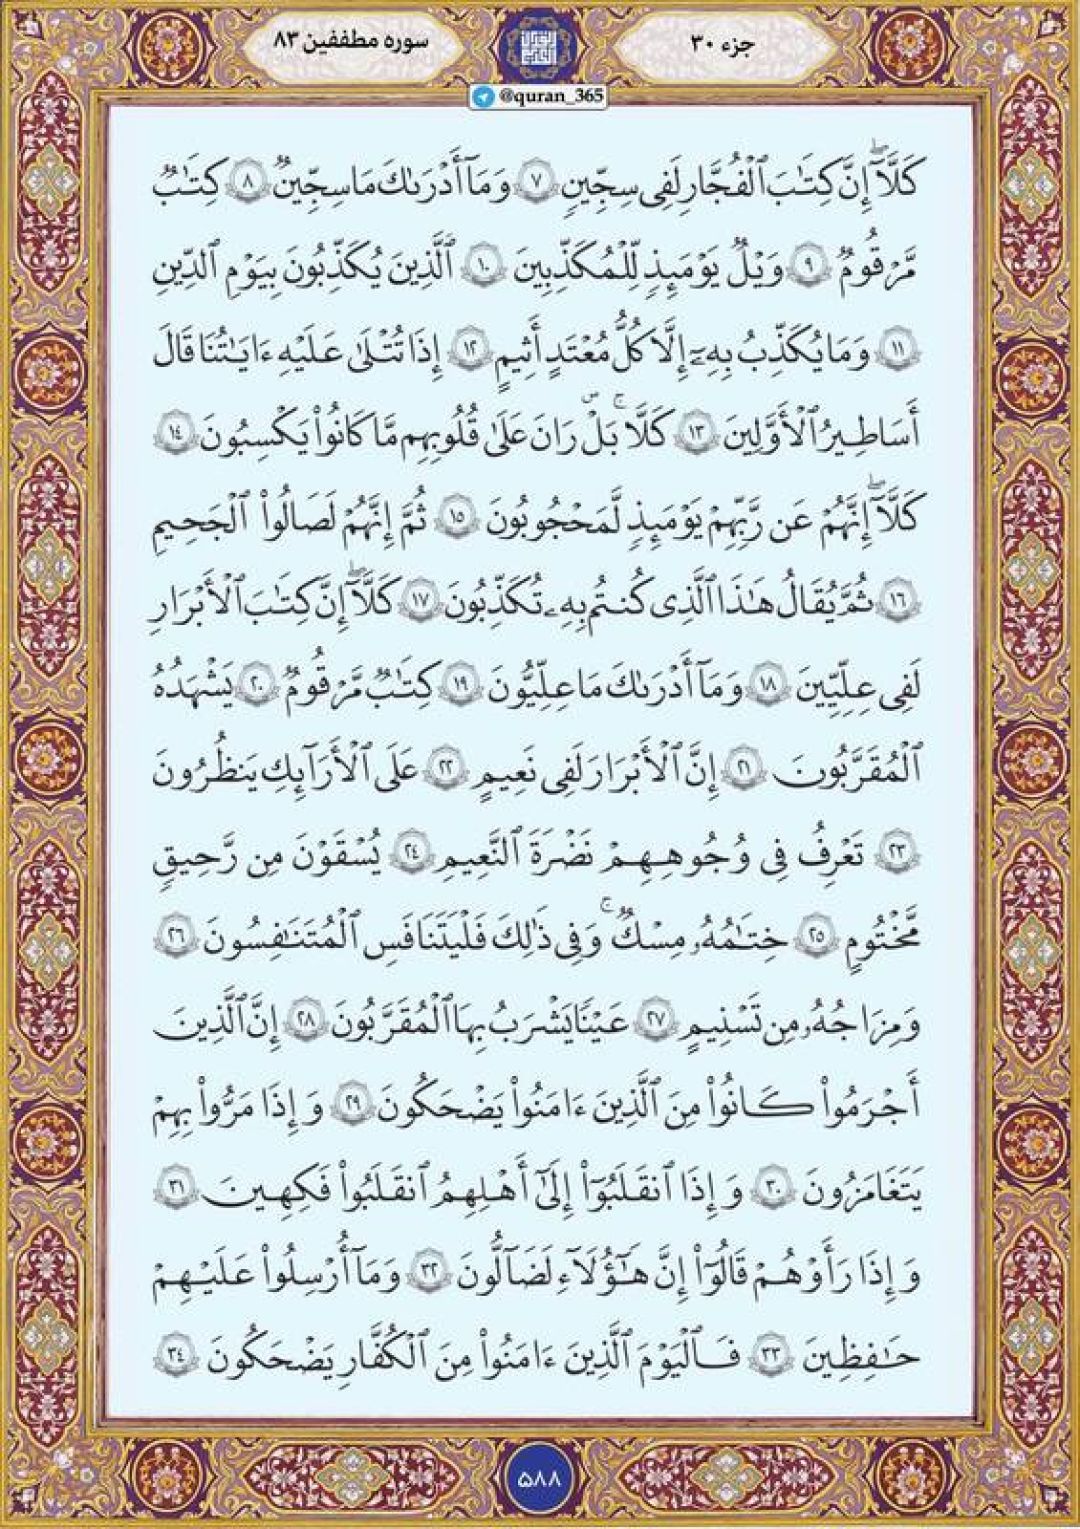 جزء ۳۰
سوره مطففین ۸۳
@quran_365
كَلَّآ إِنَّ كِتَٰبَ ٱلْفُجَّارِ لَفِى سِجِّينٍۢ ٧ وَمَآ أَدْرَىٰكَ مَا سِجِّينٌۭ ٨ كِتَٰبٌۭ
مَّرْقُومٌۭ ٩ وَيْلٌۭ يَوْمَئِذٍۢ لِّلْمُكَذِّبِينَ ١٠ ٱلَّذِينَ يُكَذِّبُونَ بِيَوْمِ ٱلدِّينِ
١١ وَمَا يُكَذِّبُ بِهِۦٓ إِلَّا كُلُّ مُعْتَدٍ أَثِيمٍ ١٢ إِذَا تُتْلَىٰ عَلَيْهِ ءَايَٰتُنَا قَالَ
أَسَٰطِيرُ ٱلْأَوَّلِينَ ١٣ كَلَّا ۖ بَلْ ۜ رَانَ عَلَىٰ قُلُوبِهِم مَّا كَانُوا۟ يَكْسِبُونَ ١٤
كَلَّآ إِنَّهُمْ عَن رَّبِّهِمْ يَوْمَئِذٍۢ لَّمَحْجُوبُونَ ١٥ ثُمَّ إِنَّهُمْ لَصَالُوا۟ ٱلْجَحِيمِ
١٦ ثُمَّ يُقَالُ هَٰذَا ٱلَّذِى كُنتُم بِهِۦ تُكَذِّبُونَ ١٧ كَلَّآ إِنَّ كِتَٰبَ ٱلْأَبْرَارِ
لَفِى عِلِّيِّينَ ١٨ وَمَآ أَدْرَىٰكَ مَا عِلِّيُّونَ ١٩ كِتَٰبٌۭ مَّرْقُومٌۭ ٢٠ يَشْهَدُهُ
ٱلْمُقَرَّبُونَ ٢١ إِنَّ ٱلْأَبْرَارَ لَفِى نَعِيمٍ ٢٢ عَلَى ٱلْأَرَآئِكِ يَنظُرُونَ
٢٣ تَعْرِفُ فِى وُجُوهِهِمْ نَضْرَةَ ٱلنَّعِيمِ ٢٤ يُسْقَوْنَ مِن رَّحِيقٍۢ
مَّخْتُومٍ ٢٥ خِتَٰمُهُۥ مِسْكٌۭ ۚ وَفِى ذَٰلِكَ فَلْيَتَنَافَسِ ٱلْمُتَنَٰفِسُونَ ٢٦
وَمِزَاجُهُۥ مِن تَسْنِيمٍ ٢٧ عَيْنًۭا يَشْرَبُ بِهَا ٱلْمُقَرَّبُونَ ٢٨ إِنَّ ٱلَّذِينَ
أَجْرَمُوا۟ كَانُوا۟ مِنَ ٱلَّذِينَ ءَامَنُوا۟ يَضْحَكُونَ ٢٩ وَإِذَا مَرُّوا۟ بِهِمْ
يَتَغَامَزُونَ ٣٠ وَإِذَا ٱنقَلَبُوٓا۟ إِلَىٰٓ أَهْلِهِمُ ٱنقَلَبُوا۟ فَكِهِينَ ٣١
وَإِذَا رَأَوْهُمْ قَالُوٓا۟ إِنَّ هَٰٓؤُلَآءِ لَضَآلُّونَ ٣٢ وَمَآ أُرْسِلُوا۟ عَلَيْهِمْ
حَٰفِظِينَ ٣٣ فَٱلْيَوْمَ ٱلَّذِينَ ءَامَنُوا۟ مِنَ ٱلْكُفَّارِ يَضْحَكُونَ ٣٤
۵۸۸